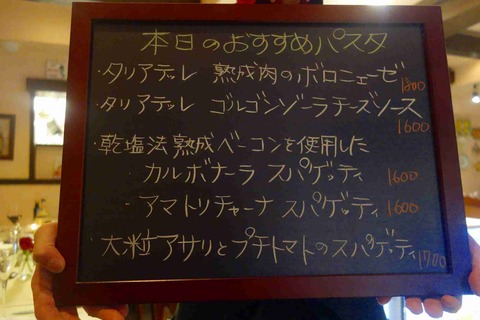 本日のおすすめパスタ
・タリアテッレ 熟成肉のボロニェーゼ 1800
・タリアテッレ ゴルゴンゾーラチーズソース 1600
・乾塩法熟成ベーコンを使用した
・カルボナーラ スパゲッティ 1600
・アマトリチャーナ スパゲッティ 1600
・大粒アサリとプチトマトのスパゲッティ 1700